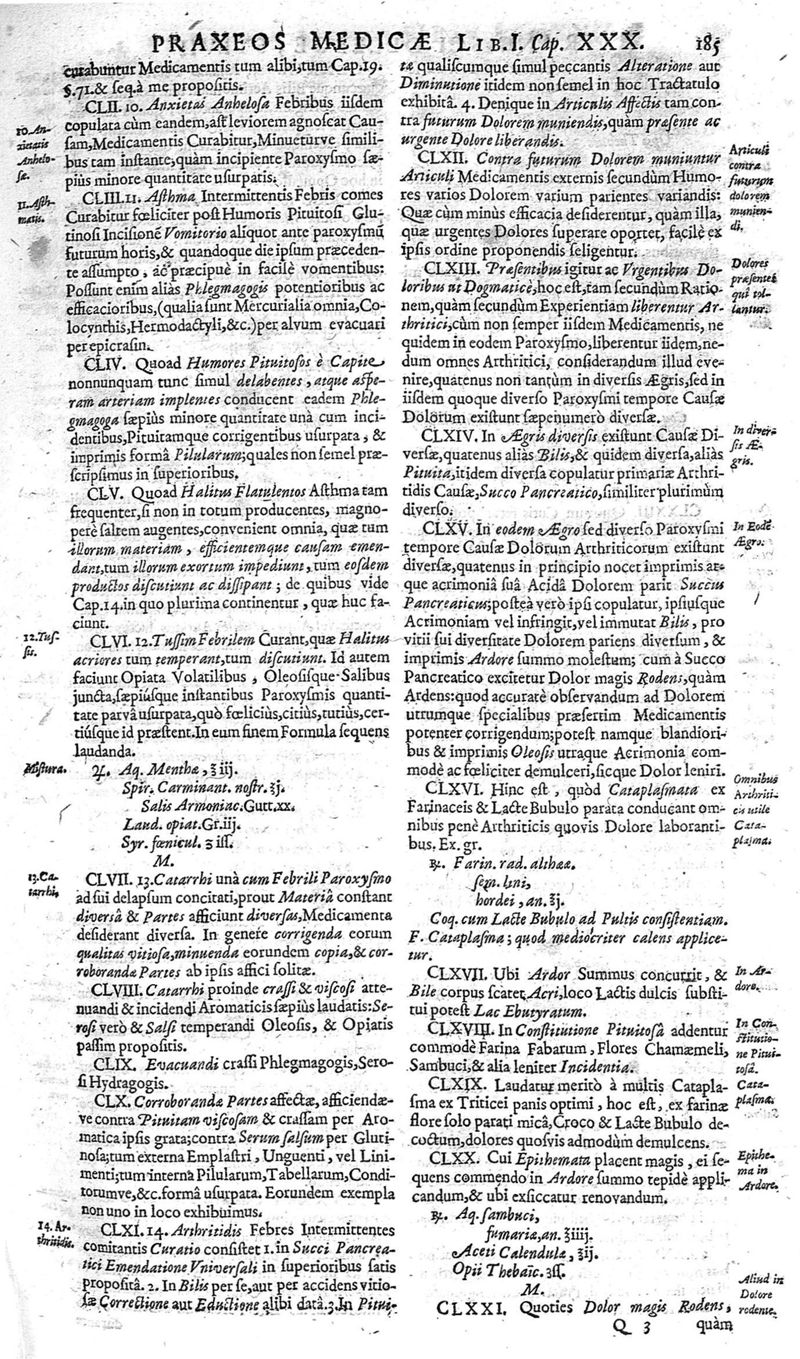 PRAXEOS MEDICÆ LIB. I. Cap. XXX. 185
curabuntur Medicamentis tum alibi, tum Cap. 19.
§. 71. & seq. à me propositis.
CLII. 10. Anxietas Anhelosa Febribus iisdem
copulata cùm eandem, ast leviorem agnoscat Cau-
sam, Medicamentis Curabitur, Minuetúrve simili-
bus tam instante, quàm incipiente Paroxysmo sæ-
piùs minore quantitate usurpatis.
10. An-
xietatis
Anhelo-
sæ.
CLIII. 11. Asthma Intermittentis Febris comes
Curabitur fœliciter post Humoris Pituitosi Glu-
tinosi Incisionem Vomitorio aliquot ante paroxysmū
futurum horis, & quandoque die ipsum præceden-
te assumpto, ac præcipuè in facilè vomentibus:
Possunt enim aliàs Phlegmagogis potentioribus ac
efficacioribus, (qualia sunt Mercurialia omnia, Co-
locynthis, Hermodactyli, &c.) per alvum evacuari
per epicrasin.
11. Asth-
matis.
CLIV. Quoad Humores Pituitosos è Capite
nonnunquam tunc simul delabentes, atque aspe-
ram arteriam implentes conducent eadem Phle-
gmagoga sæpiùs minore quantitate unà cum inci-
dentibus, Pituitamque corrigentibus usurpata, &
imprimis formâ Pilularum; quales non semel præ-
scripsimus in superioribus.
CLV. Quoad Halitus Flatulentos Asthma tam
frequenter, si non in totum producentes, magno-
perè saltem augentes, convenient omnia, quæ tum
illorum materiam, efficientemque causam emen-
dant, tum illorum exortum impediunt, tum eosdem
productos discutiunt ac dissipant; de quibus vide
Cap. 14. in quo plurima continentur, quæ huc fa-
ciunt.
CLVI. 12. Tussim Febrilem Curant, quæ Halitus
acriores tum temperant, tum discutiunt. Id autem
faciunt Opiata Volatilibus, Oleosisque Salibus
juncta, sæpiúsque instantibus Paroxysmis quanti-
tate parvâ usurpata, quò fœliciùs, citiùs, tutiùs, cer-
tiúsque id præstent. In eum finem Formula sequens
laudanda.
12. Tus-
sis.
Mistura.
♃. Aq. Menthæ, ℥iij.
Spir. Carminant. nostr. ℥j.
Salis Armoniac. Gutt. xx.
Laud. opiat. Gr. iij.
Syr. fœnicul. ℥iss.
M.
CLVII. 13. Catarrhi unà cum Febrili Paroxysmo
ad sui delapsum concitati, prout Materiâ constant
diversâ & Partes afficiunt diversas, Medicamenta
desiderant diversa. In genere corrigenda eorum
qualitas vitiosa, minuenda eorundem copia, & cor-
roborandæ Partes ab ipsis affici solitæ.
13. Ca-
tarrhi,
CLVIII. Catarrhi proinde crassi & viscosi atte-
nuandi & incidendi Aromaticis sæpiùs laudatis: Se-
rosi verò & Salsi temperandi Oleosis, & Opiatis
passim propositis.
CLIX. Evacuandi crassi Phlegmagogis, Sero-
si Hydragogis.
CLX. Corroborandæ Partes affectæ, afficiendæ-
ve contra Pituitam viscosam & crassam per Aro-
matica ipsis grata; contra Serum salsum per Gluti-
nosa; tum externa Emplastri, Unguenti, vel Lini-
menti; tum interna Pilularum, Tabellarum, Condi-
torumve, &c. formâ usurpata. Eorundem exempla
non uno in loco exhibuimus.
CLXI. 14. Arthritidis Febres Intermittentes
comitantis Curatio consistet 1. in Succi Pancrea-
tici Emendatione Vniversali in superioribus satis
propositâ. 2. In Bilis per se, aut per accidens vitio-
sæ Correctione aut Eductione alibi datâ. 3. In Pitui-
14. Ar-
thritidis.
tæ qualiscumque simul peccantis Alteratione aut
Diminutione itidem non semel in hoc Tractatulo
exhibitâ. 4. Denique in Articulis Affectis tam con-
tra futurum Dolorem muniendis, quàm præsente ac
urgente Dolore liberandis.
CLXII. Contra futurum Dolorem muniuntur
Articuli Medicamentis externis secundùm Humo-
res varios Dolorem varium parientes variandis:
Quæ cùm minùs efficacia desiderentur, quàm illa,
quæ urgentes Dolores superare oportet, facilè ex
ipsis ordine proponendis seligentur.
Articuli
contra
futurum
dolorem
munien-
di.
CLXIII. Præsentibus igitur ac Vrgentibus Do-
loribus ut Dogmaticè, hoc est, tam secundùm Ratio-
nem, quàm secundùm Experientiam liberentur Ar-
thritici, cùm non semper iisdem Medicamentis, ne
quidem in eodem Paroxysmo, liberentur iidem, ne-
dum omnes Arthritici, considerandum illud eve-
nire, quatenus non tantùm in diversis Ægris, sed in
iisdem quoque diverso Paroxysmi tempore Causæ
Dolorum existunt sæpenumerò diversæ.
Dolores
præsentes
qui tol-
lantur.
CLXIV. In Ægris diversis existunt Causæ Di-
versæ, quatenus aliàs Bilis, & quidem diversa, aliàs
Pituita, itidem diversa copulatur primariæ Arthri-
tidis Causæ, Succo Pancreatico, similiter plurimùm
diverso.
In diver-
sis Æ-
gris.
CLXV. In eodem Ægro sed diverso Paroxysmi
tempore Causæ Dolorum Arthriticorum existunt
diversæ, quatenus in principio nocet imprimis at-
que acrimoniâ suâ Acidâ Dolorem parit Succus
Pancreaticus; posteà verò ipsi copulatur, ipsiusque
Acrimoniam vel infringit, vel immutat Bilis, pro
vitii sui diversitate Dolorem pariens diversum, &
imprimis Ardore summo molestum; cum à Succo
Pancreatico excitetur Dolor magis Rodens, quàm
Ardens: quod accuratè observandum ad Dolorem
utrumque specialibus præsertim Medicamentis
potenter corrigendum; potest namque blandiori-
bus & imprimis Oleosis utraque Acrimonia com-
modè ac fœliciter demulceri, sicque Dolor leniri.
In Eodē
Ægro.
CLXVI. Hinc est, quòd Cataplasmata ex
Farinaceis & Lacte Bubulo parata conducant om-
nibus penè Arthriticis quovis Dolore laboranti-
bus. Ex. gr.
Omnibus
Arthriti-
cis utile
Cata-
plasma.
℞. Farin. rad. althææ.
sem. lini,
hordei, an. ℥j.
Coq. cum Lacte Bubulo ad Pultis consistentiam.
F. Cataplasma; quod mediocriter calens applice-
tur.
CLXVII. Ubi Ardor Summus concurrit, &
Bile corpus scatet, Acri, loco Lactis dulcis substi-
tui potest Lac Ebutyratum.
In Ar-
dore.
CLXVIII. In Constitutione Pituitosâ addentur
commodè Farina Fabarum, Flores Chamæmeli,
Sambuci, & alia leniter Incidentia.
In Con-
stitutio-
ne Pitui-
tosâ.
CLXIX. Laudatur meritò à multis Catapla-
sma ex Triticei panis optimi, hoc est, ex farinæ
flore solo parati micâ, Croco & Lacte Bubulo de-
coctum, dolores quosvis admodùm demulcens.
Cata-
plasma.
CLXX. Cui Epithemata placent magis, ei se-
quens commendo in Ardore summo tepidè appli-
candum, & ubi exsiccatur renovandum.
Epithe-
ma in
Ardore.
℞. Aq. sambuci,
fumariæ, an. ℥iiij.
Aceti Calendulæ, ℥ij.
Opii Thebaïc. ʒss.
M.
CLXXI. Quoties Dolor magis Rodens,
Aliud in
Dolore
rodente.
Q 3 quàm